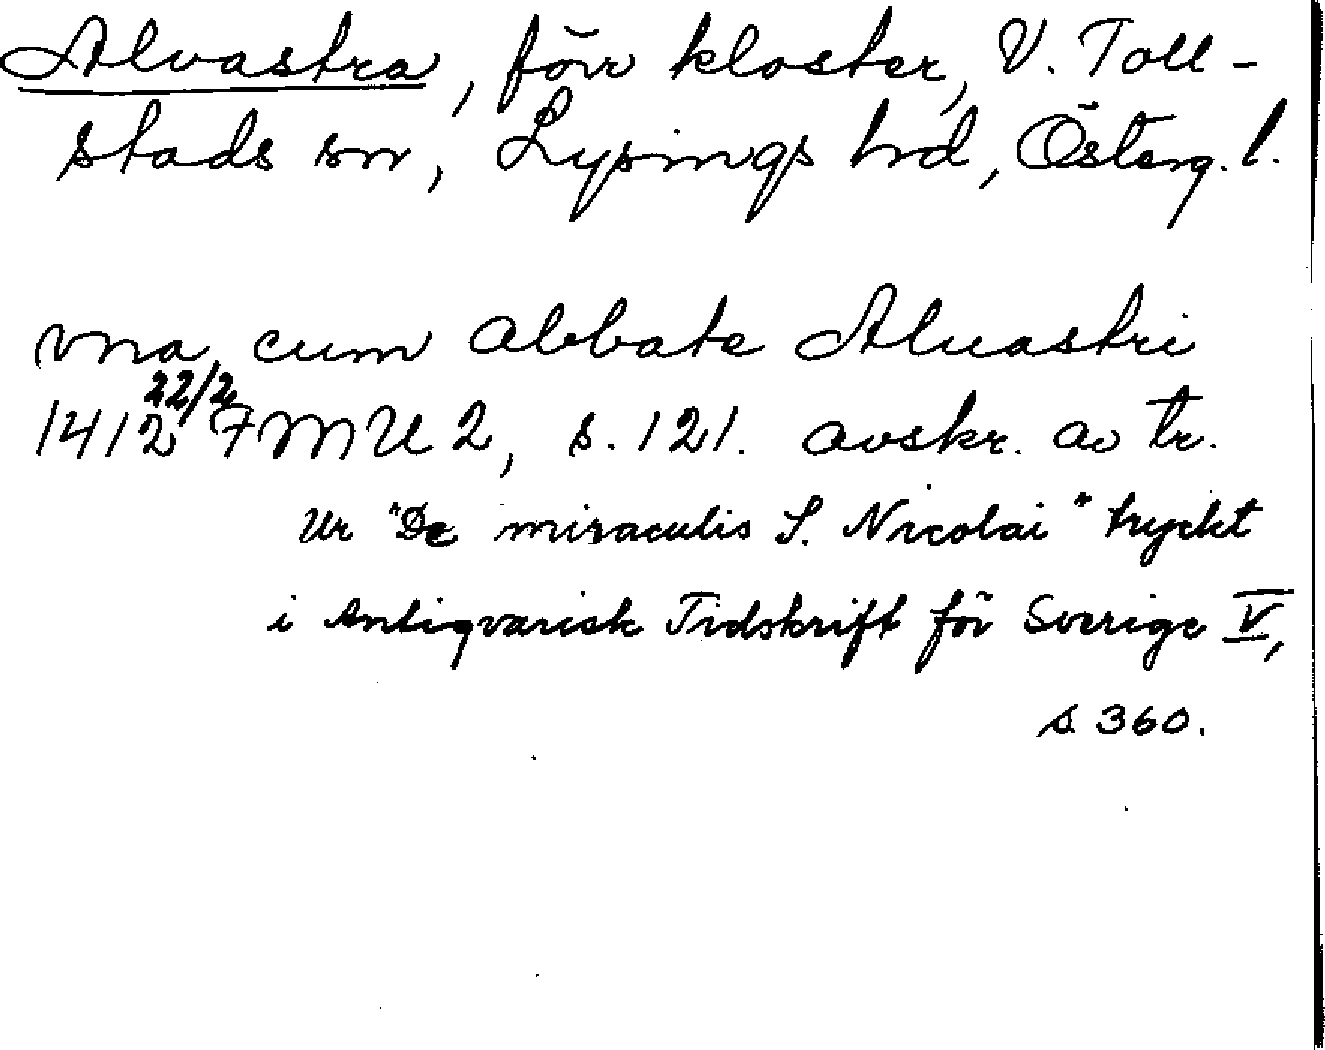 Alvastra, förr kloster, V. Toll-
stads sn, Lysings hd, Österg. l.
vna cum abbate Aluastri
1412 22/2 FMU 2, s. 121. avskr. av tr.
Ur "De miraculis S. Nicolai" tryckt
i Antiqvarisk Tidskrift för Sverige V,
s. 360.